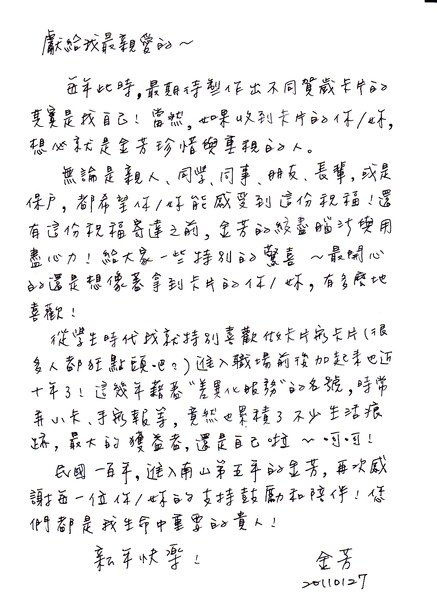 獻給我最親愛的～
每年此時，最期待製作出不同賀歲卡片的
其實是我自己！當然，如果收到卡片的你/妳，
想必就是金芳珍惜與重視的人。
無論是親人、同學、同事、朋友、長輩，或是
保戶，都希望你/妳能感受到這份祝福！還
有這份祝福寄達之前，金芳的絞盡腦汁與用
盡心力！給大家一些特別的驚喜～最開心
的還是想像著拿到卡片的你/妳，有多麼地
喜歡！
從學生時代我就特別喜歡做卡片寄卡片(很
多人都狂點頭吧？)進入職場前後加起來也近
十年了！這幾年藉著"差異化服務"的名號，時常
弄小卡、手寫報等，竟然也累積了不少生活痕
跡，最大的獲益者，還是自己啦～呵呵！
民國一百年，進入南山第五年的金芳，再次感
謝每一位你/妳的支持鼓勵和陪伴！您
們都是我生命中重要的貴人！
新年快樂！
金芳
20110127